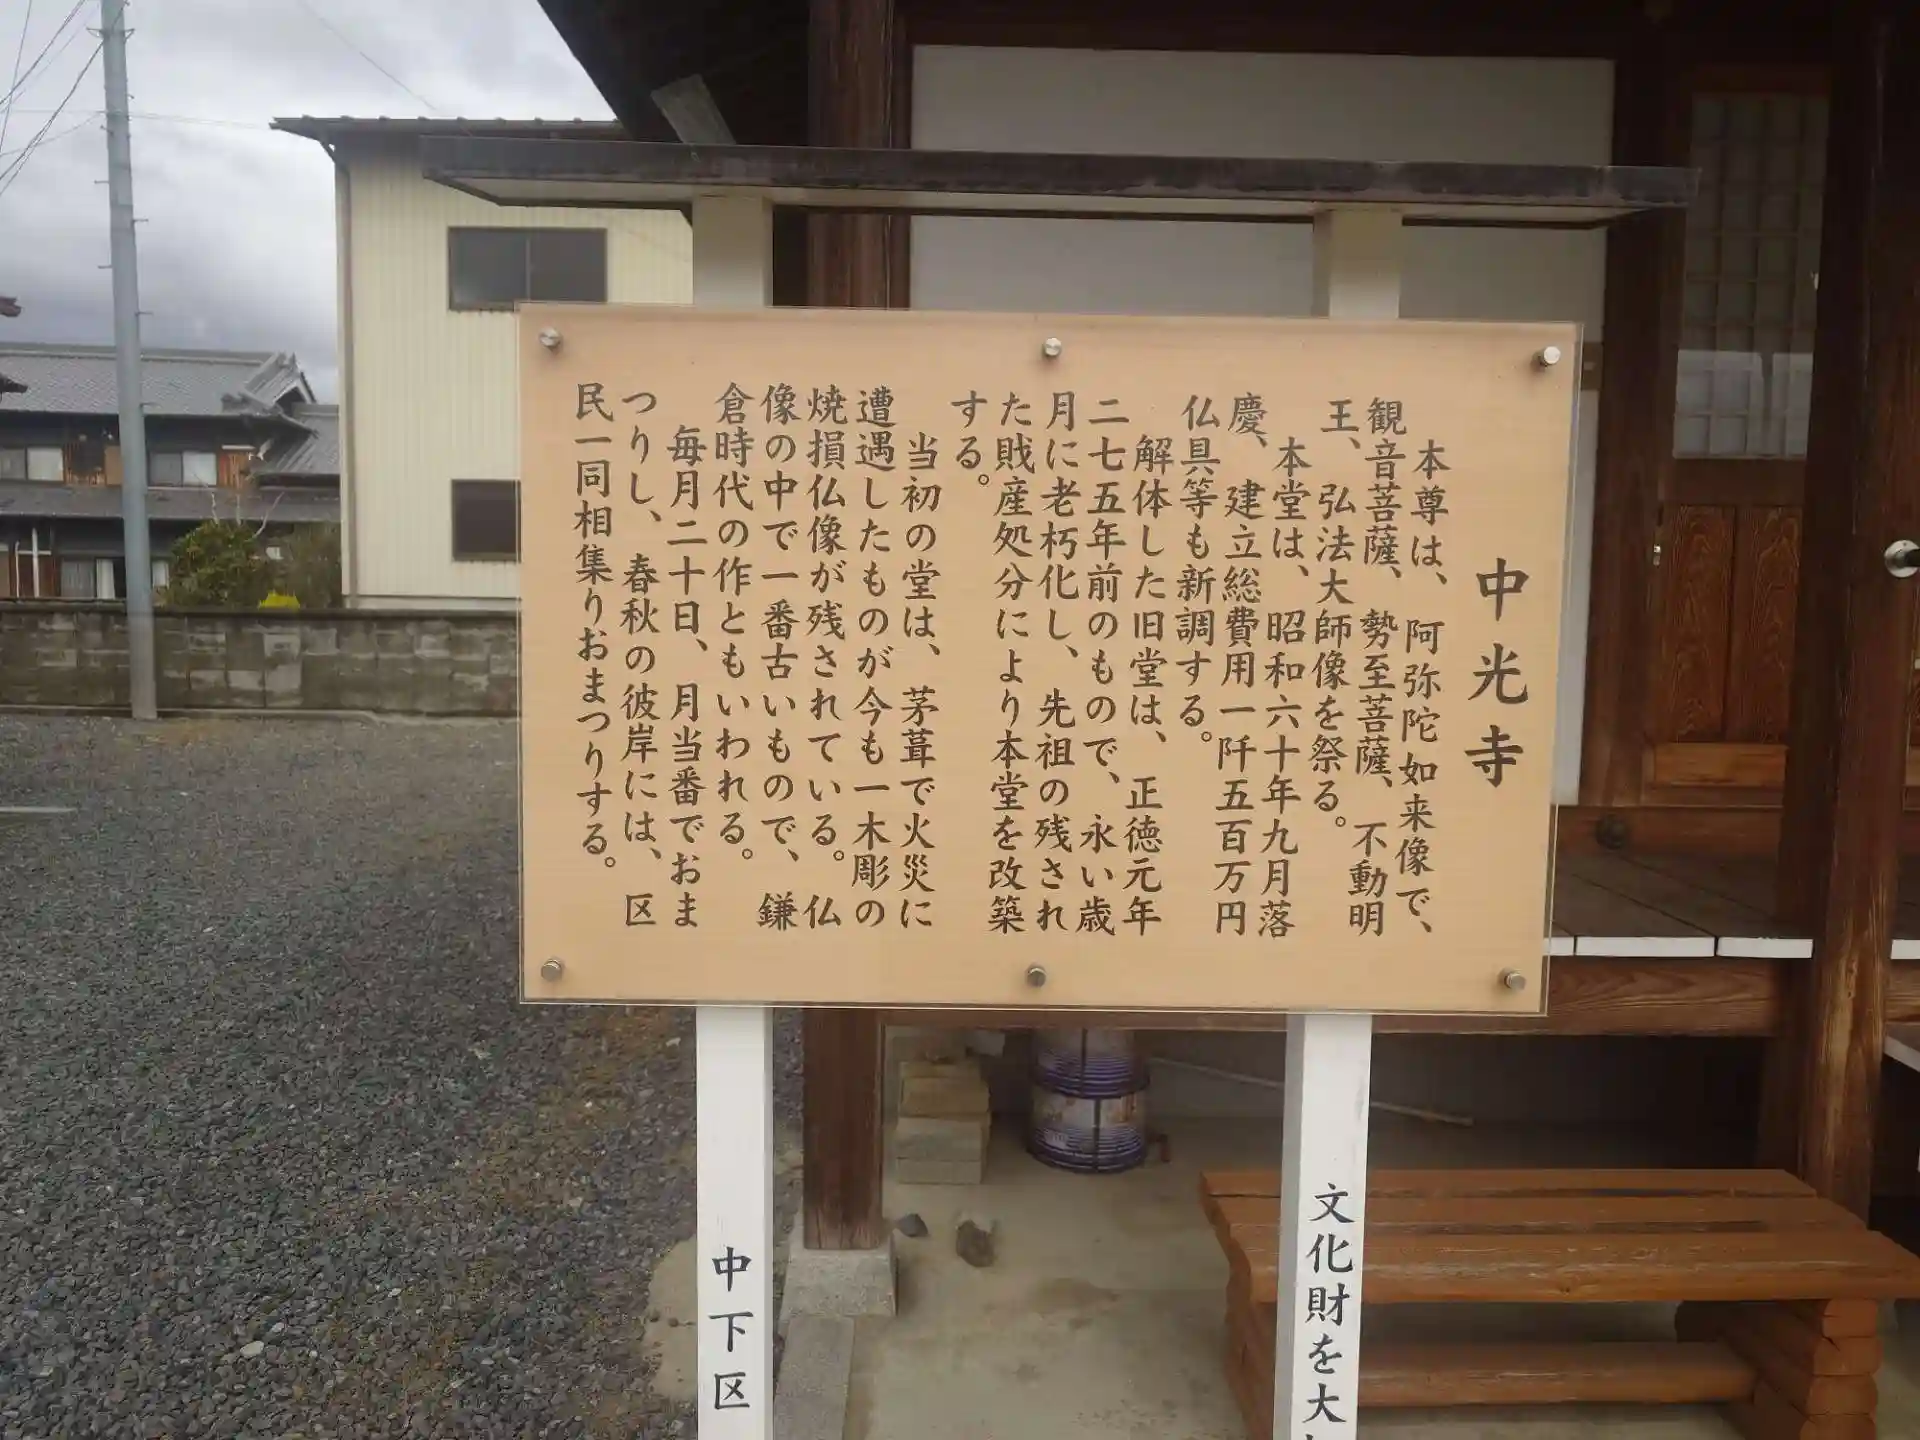 中光寺
本尊は、阿弥陀如来像で、
観音菩薩、勢至菩薩、不動明
王、弘法大師像を祭る。
本堂は、昭和六十年九月落
慶、建立総費用一阡五百万円
仏具等も新調する。
解体した旧堂は、正徳元年
二七五年前のもので、永い歳
月に老朽化し、先祖の残され
た賎産処分により本堂を改築
する。
当初の堂は、茅葺で火災に
遭遇したものが今も一木彫の
焼損仏像が残されている。仏
像の中で一番古いもので、鎌
倉時代の作ともいわれる。
毎月二十日、月当番でおま
つりし、春秋の彼岸には、区
民一同相集りおまつりする。
文化財を大
中下区